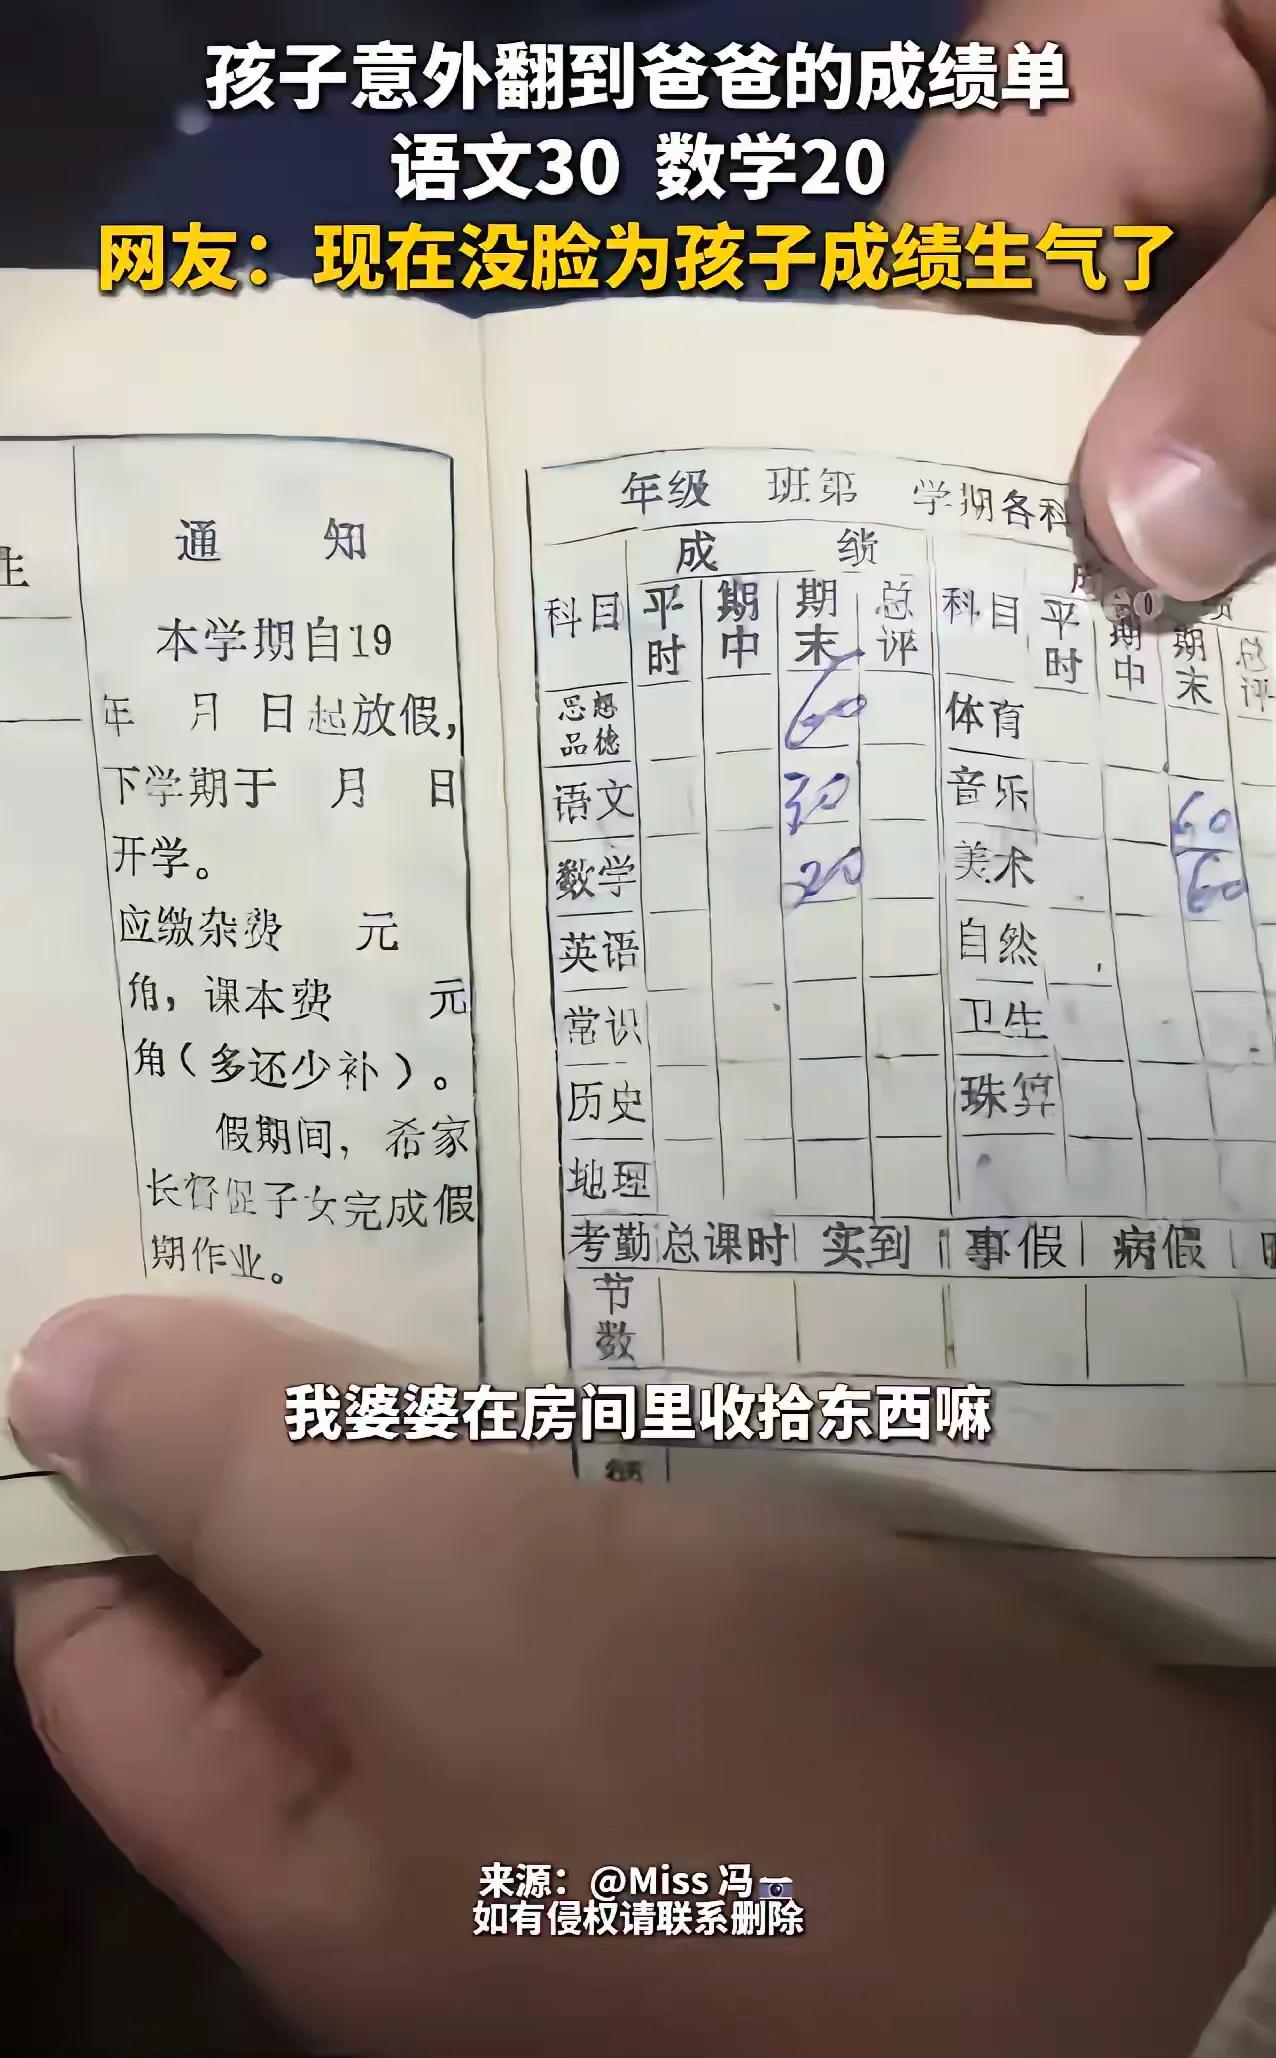 孩子意外翻到爸爸的成绩单
语文30 数学20
网友：现在没脸为孩子成绩生气了
生
通 知
本学期自19
年 月 日起放假，
下学期于 月 日
开学。
应缴杂费 元
角，课本费 元
角（多还少补）。
假期间，希家
长督促子女完成假
期作业。
年级 班第 学期各科
成 绩
科目 平时 期中 期末 总评 科目 平时 期中 期末 总评
思想品德 60 体育
语文 30 音乐 60
数学 20 美术 60
英语 自然
常识 卫生
历史 珠算
地理
考勤 总课时 实到 事假 病假
节数
我婆婆在房间里收拾东西嘛
来源：@Miss 冯
如有侵权请联系删除